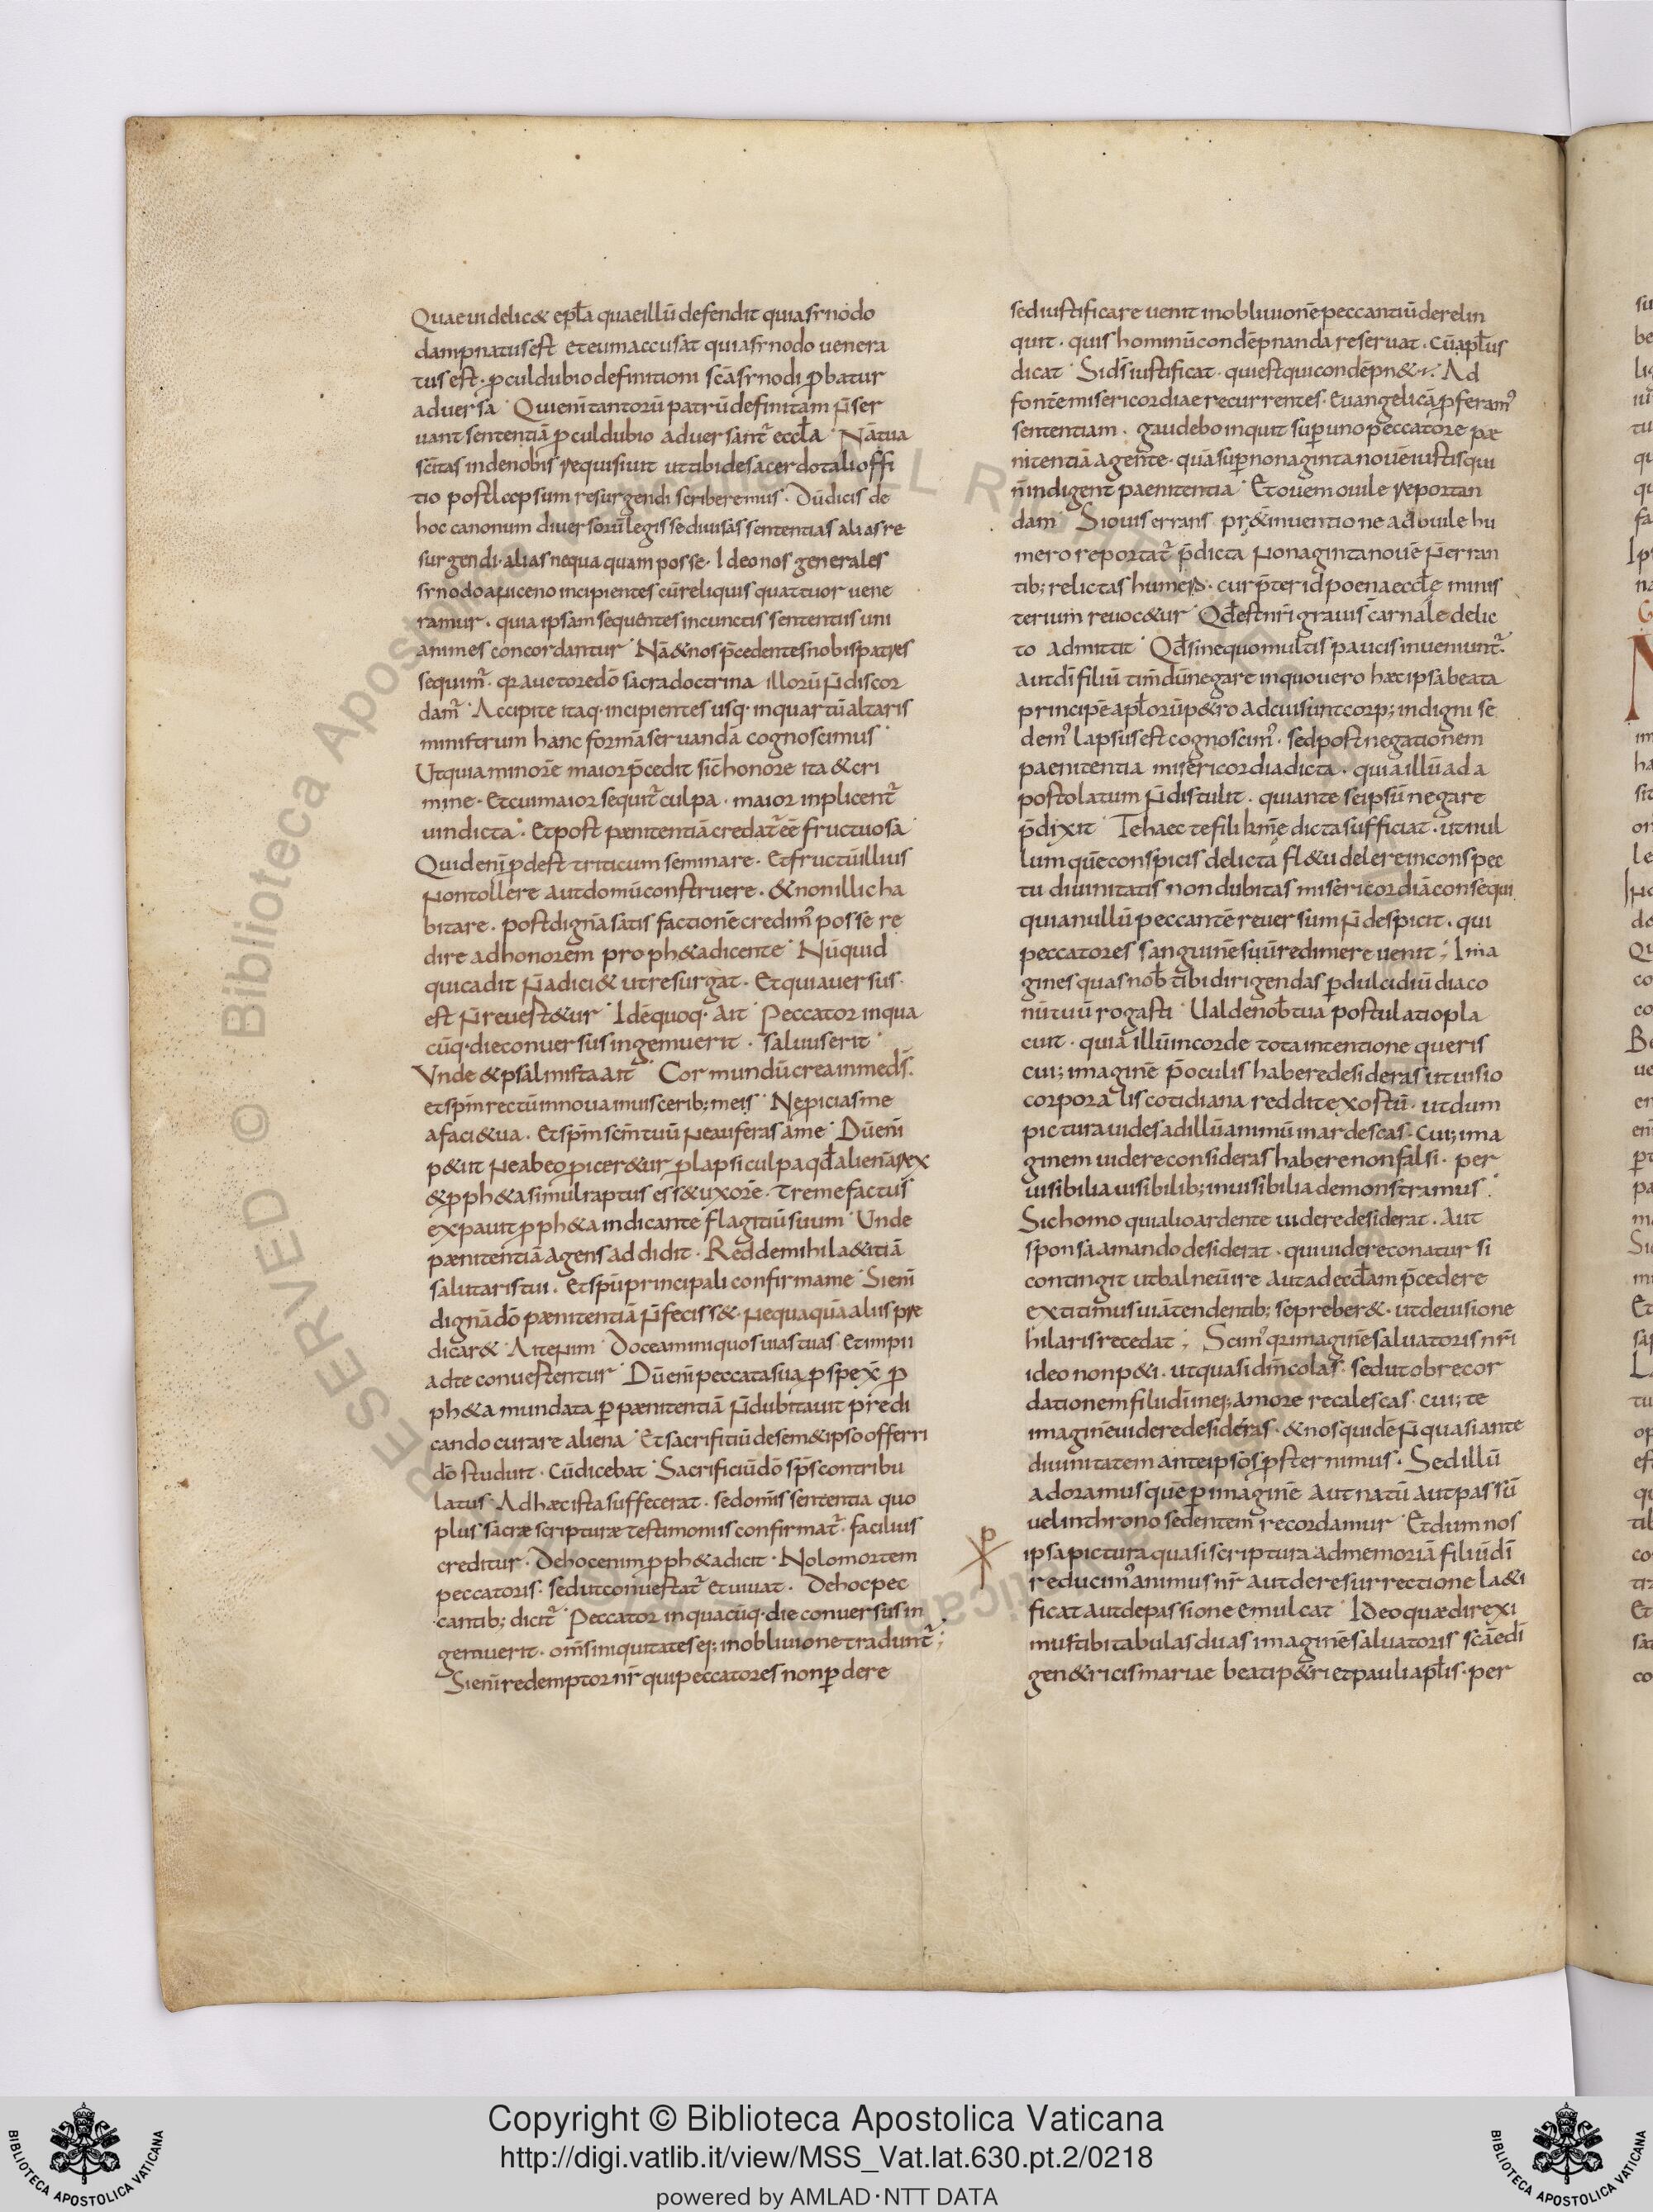 Quae uidelic& epła quae illū defendit quia synodo
dampnatus est et eum accusat qui a synodo uenera
tus est · pculdubio definitioni scā synodi pbatur
aduersa · Qui enī tantorū patrū definitam ñ ser
uant sententiā pculdubio aduersant̃ ecclā · Nā tua
scītas inde nobis requisiuit ut tibi de sacerdotali offi
tio post lapsum resurgendi scriberemus · Dū dicis de
hoc canonum diuersorū legisse diuisas sententias alias re
surgendi · alias nequaquam posse · Ideo nos generales
synodo a niceno incipientes cū reliquis quattuor uene
ramur · quia ipsam sequentes in cunctis sententiis uni
animes concordantur · Nā & nos p̄cedentes nobis patres
sequim̃ · qr auctore dō sacra doctrina illorū ñ discor
dam̃ · Accipite itaq · incipientes usq · in quartū altaris
ministrum hanc formā seruandā cognoscimus ·
Ut quia minorē maior p̄cedit sic honore ita & cri
mine · Et cui maior sequit̃ culpa · maior inplicent̃
uindicta · Et post pænitentiā credat̃ eē fructuosa
Quid enī pdest triticum seminare · Et fructū illius
non tollere aut domū construere · & non illic ha
bitare · post dignā satisfactionē credim' posse re
dire ad honorem proph&a dicente · Nūquid
qui cadit ñ adici& ut resurgat · Et qui auersus ·
est ñ reuest&ur · Idē quoq · ait · Peccator in qua
cūq · die conuersus ingemuerit · saluus erit ·
Unde & psalmista ait · Cor mundū crea in me ds̄ ·
et spm̄ rectū innoua in uiscerib; meis · Ne piciasme
a faci& ua · Et spm̄ scm̄ tuū ne auferas a me · Dū enī
p&iit ne ab eo piceretur p lapsi culpa qđ alienā rex
& pph&a simul raptus ess& uxorē · Tremefactus
expauit pph&a indicante flagitiū suum · Unde
pænitentiā agens addidit · Redde mihi l&itiā
salutaris tui · Et spū principali confirma me · Si enī
dignā dō pænitentiā ñ feciss& · nequaquā aliis pre
dicar& · Aiterum · Doceam iniquos uias tuas · Et impii
ad te conuestentur · Dū enī peccata sua pspex̄ p
ph&a mundata p pænitentiā ñ dubitauit predi
cando curare aliena · Et sacrifitiū de sem&ipso offerri
dō studuit · Cū dicebat · Sacrificiū dō sps̄ contribu
latus · Ad hæc ista suffecerat · sed om̄is sententia quo
plus sacræ scripturæ testimoniis confirmat̃ · facilius
creditur · De hoc enim pph&a dicit · Nolo mortem
peccatoris · sed ut conuestat̃ et uiuat · De hoc pec
cantib; dicit̃ · Peccator in quacūq · die conuersus in
gemuerit · om̄s iniquitates ei; in obliuione tradunt̃ ;
Si enī redemptor nr̄ qui peccatores non pdere
sed iustificare uenit in obliuionē peccantiū derelin
quit · quis hominū condēpnanda reseruat · Cū apłus
dicat · Si ds̄ iustificat · qui est qui condēpn& · Ad
fontē misericordiae recurrentes · Euangelicā pferam'
sententiam · gaudebo inquit sup uno peccatore pæ
nitentiā agente · quā sup nonaginta nouē iustis qui
ñ indigent paenitentia · Et ouem ouile reportan
dam · Si ouis errans pr&̨ inuentione ad ouile hu
mero reportat̃ p̄dicta nonaginta nouē ñ erran
tib; relictas humeris · cur p̄ter id poena ecclę minis
terium reuoc&ur · Qđ est nr̄i grauis carnale delic
to admittit · Qđ sine quo multis paucis inueniunt̃ ·
aut dī filiū timdū negare in quo uero hæc ipsa beata
principē apłorū p&ro ad cui; sunt corp; indigni se
dem' lapsus est cognoscim' · sed post negationem
paenitentia misericordia dicta · quia illū ad a
postolatum ñ distulit · qui ante se ipsū negare
p̄dixit · Te haec te fili kmę dicta sufficiat · ut nul
lum quē conspicis delictā fl&u delere in conspec
tu diuinitatis non dubitas misericordiā consequi
quia nullū peccantē reuersum ñ despicit · qui
peccatores sanguinē suū redimere uenit ; Ima
gines quas nob̄ tibi dirigendas p dulcidiū diaco
nū tuū rogasti · Ualde nob̄ tua postulatio pla
cuit · quia illū in corde tota intentione queris
cui; imaginē p̄ oculis habere desideras ut uisio
corporalis cotidiana reddit exostū · ut dum
pictura uides ad illū animū inardescas · Cui; ima
ginem uidere consideras habere non falsi · per
uisibilia uisibilib; inuisibilia demonstramus ·
Sic homo qui alio ardente uidere desiderat · Aut
sponsa amando desiderat · qui uidere conatur si
contingit ut balneū ire aut ad ecclam p̄cedere
extitimus uiā tendentib; se preber& · ut de uisione
hilaris recedat ; Scim' qr imaginē saluatoris nr̄i
ideo non p&i · ut quasi dm̄ colas · sed ut ob recor
dationem filii dī in ei; amore recalescas · cui; te
imaginē uidere desideras · & nos quidē ñ quasi ante
diuinitatem ante ipsos psternimus · Sed illū
adoramus quē p imaginē aut natū aut passū
uel in throno sedentem recordamur · Et dum nos
ipsa pictura quasi scriptura ad memoriā filiū dī
reducim' animus nr̄ aut de resurrectione l&i
ficat aut de passione emulcat · Ideo quæ direxi
mus tibi tabulas duas imaginē saluatoris scāe dī
gen&ricis mariae beati p&ri et pauli apłis · per
Copyright © Biblioteca Apostolica Vaticana
http://digi.vatlib.it/view/MSS_Vat.lat.630.pt.2/0218
powered by AMLAD·NTT DATA
BIBLIOTECA APOSTOLICA VATICANA
BIBLIOTECA APOSTOLICA VATICANA